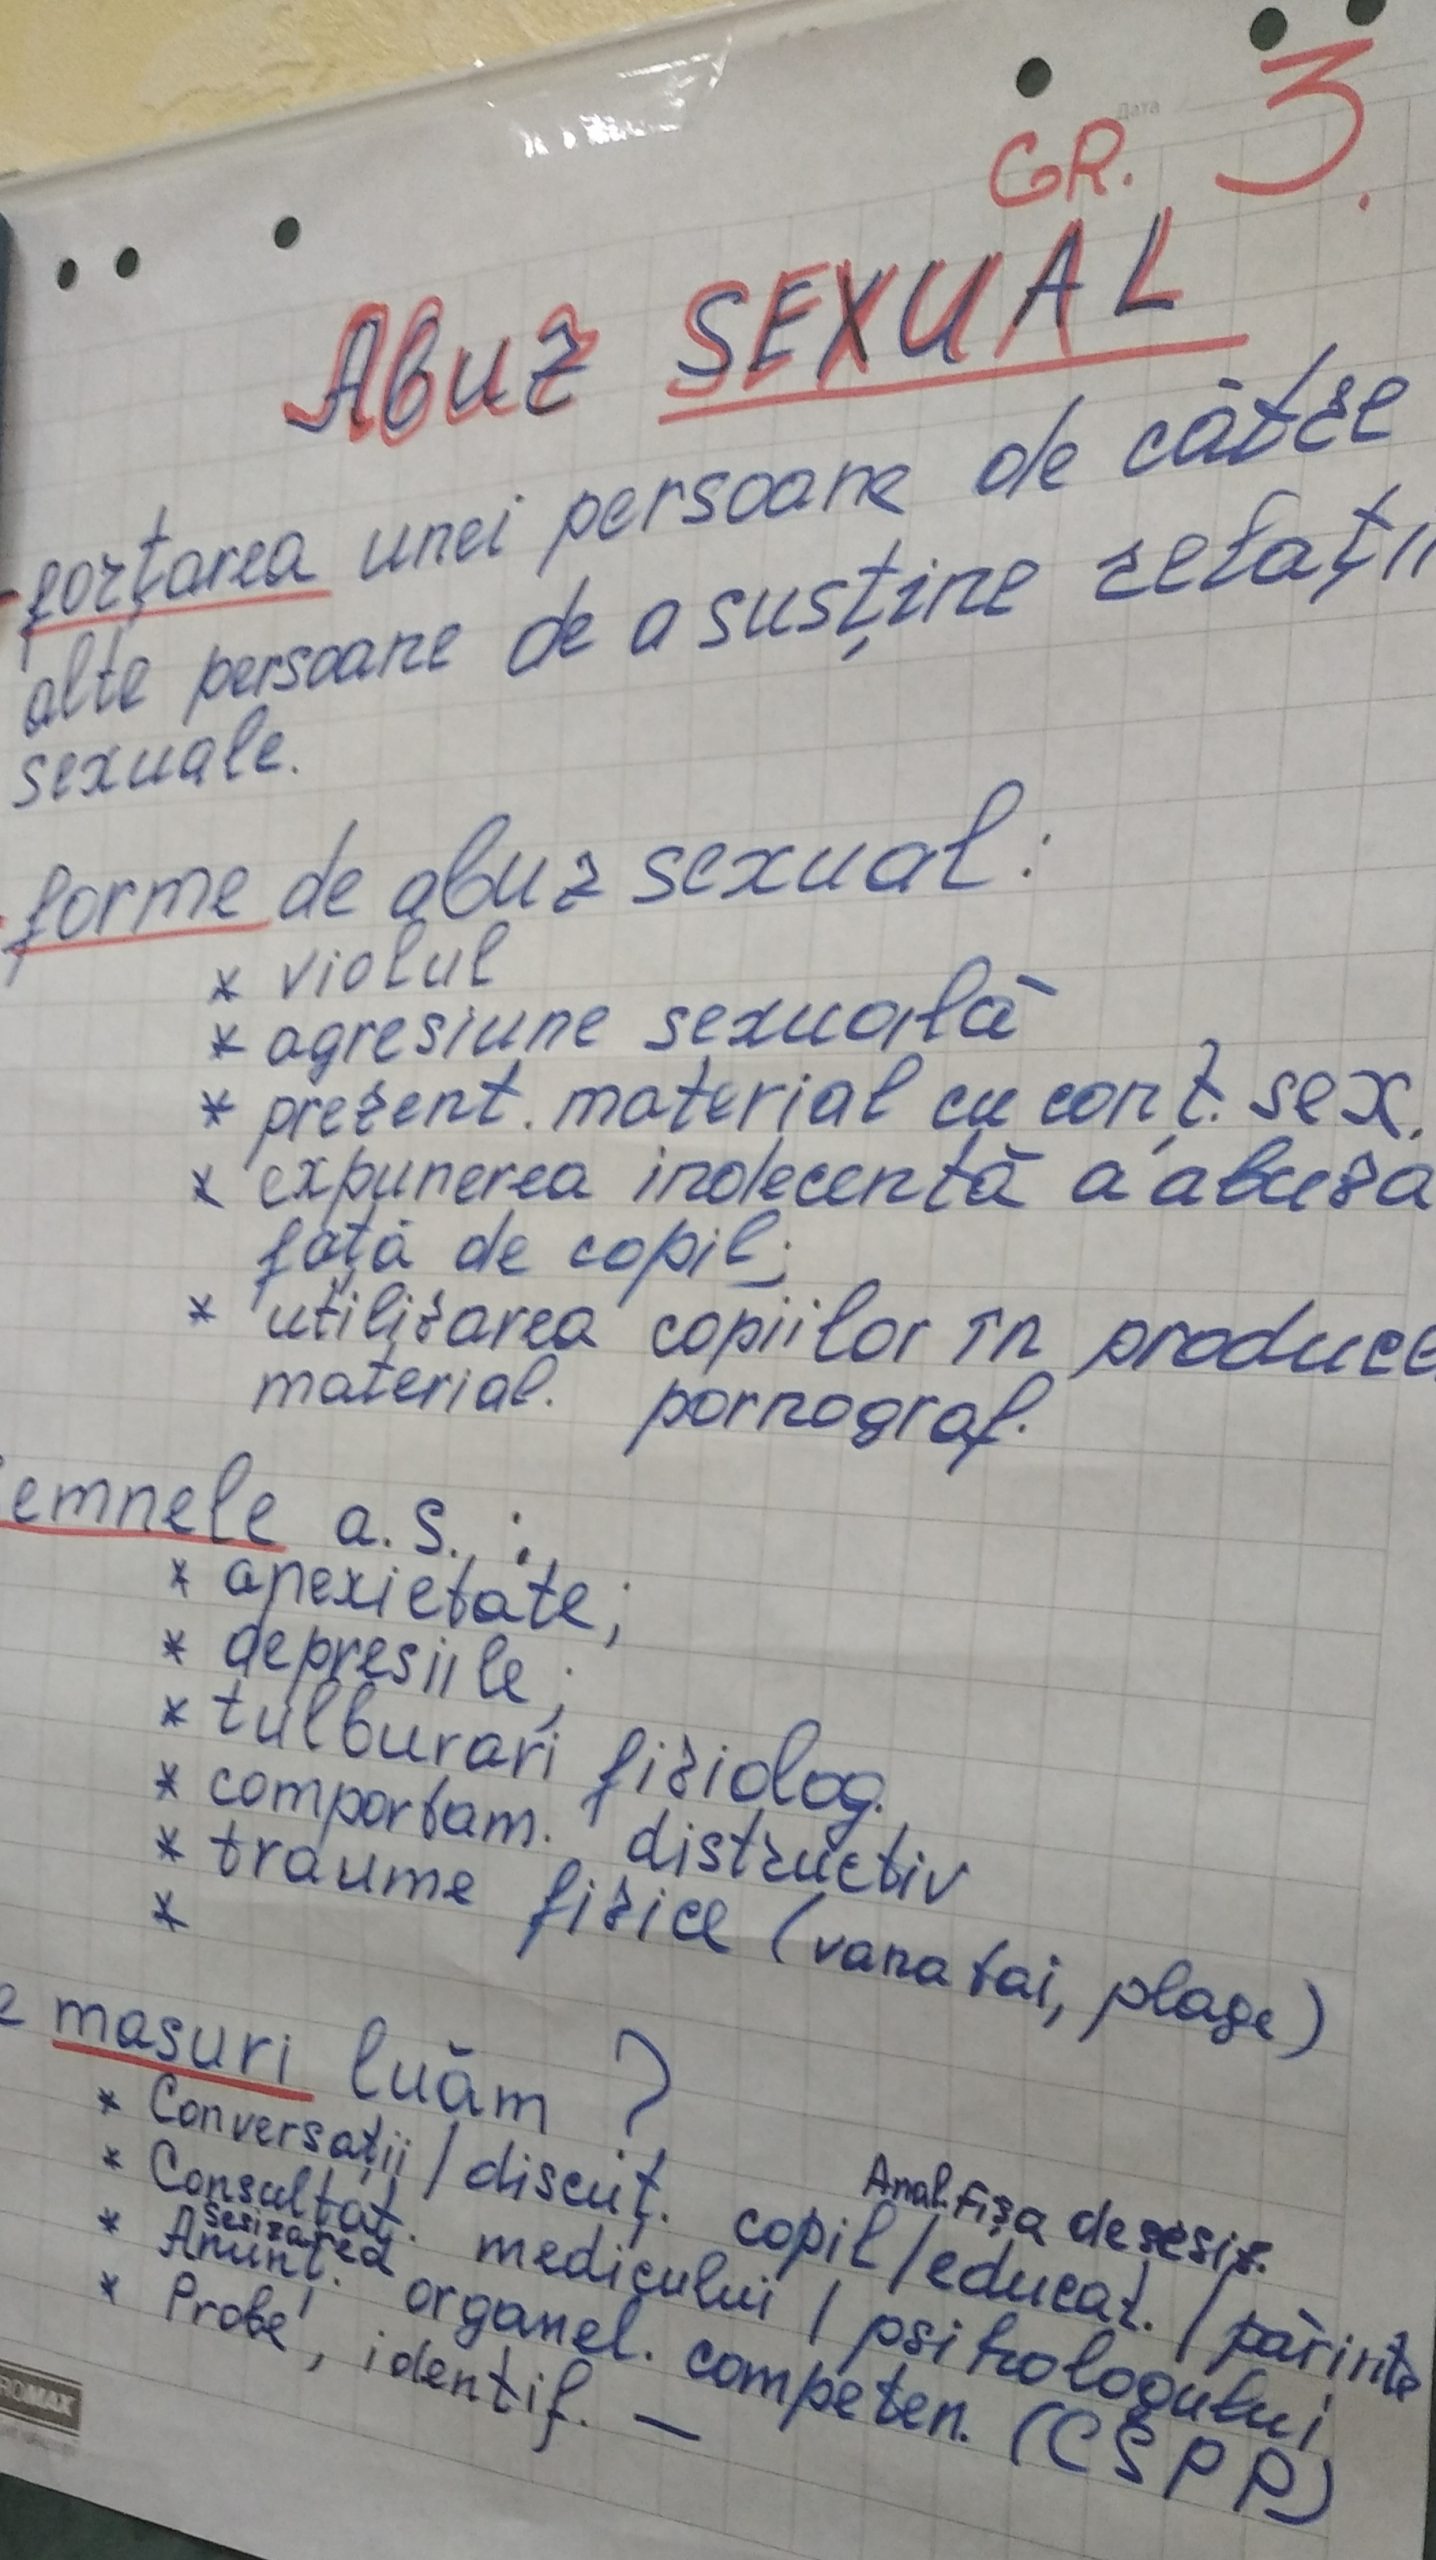 Дата
GR. 3.
Abuz SEXUAL
- forțarea unei persoane de către
alte persoane de a susține relații
sexuale.
- forme de abuz sexual:
* violul
* agresiune sexuală
* prezent. material cu conț. sex.
* expunerea indecentă a abuza
față de copil;
* utilizarea copiilor în produce
material. pornograf.
semnele a.s.:
* anexietate;
* depresiile;
* tulburari fiziolog.
* comportam. distructiv
* traume fizice (vanatai, plage)
*
e masuri luăm?
Anal. Fișa de sesiz.
* Conversații / discuț. copil / educat. / părinte
* Consultaț. medicului / psihologului
sesizarea
* Anunț. organel. competen. (CSPP)
* Probe, identif. —
ROMAX